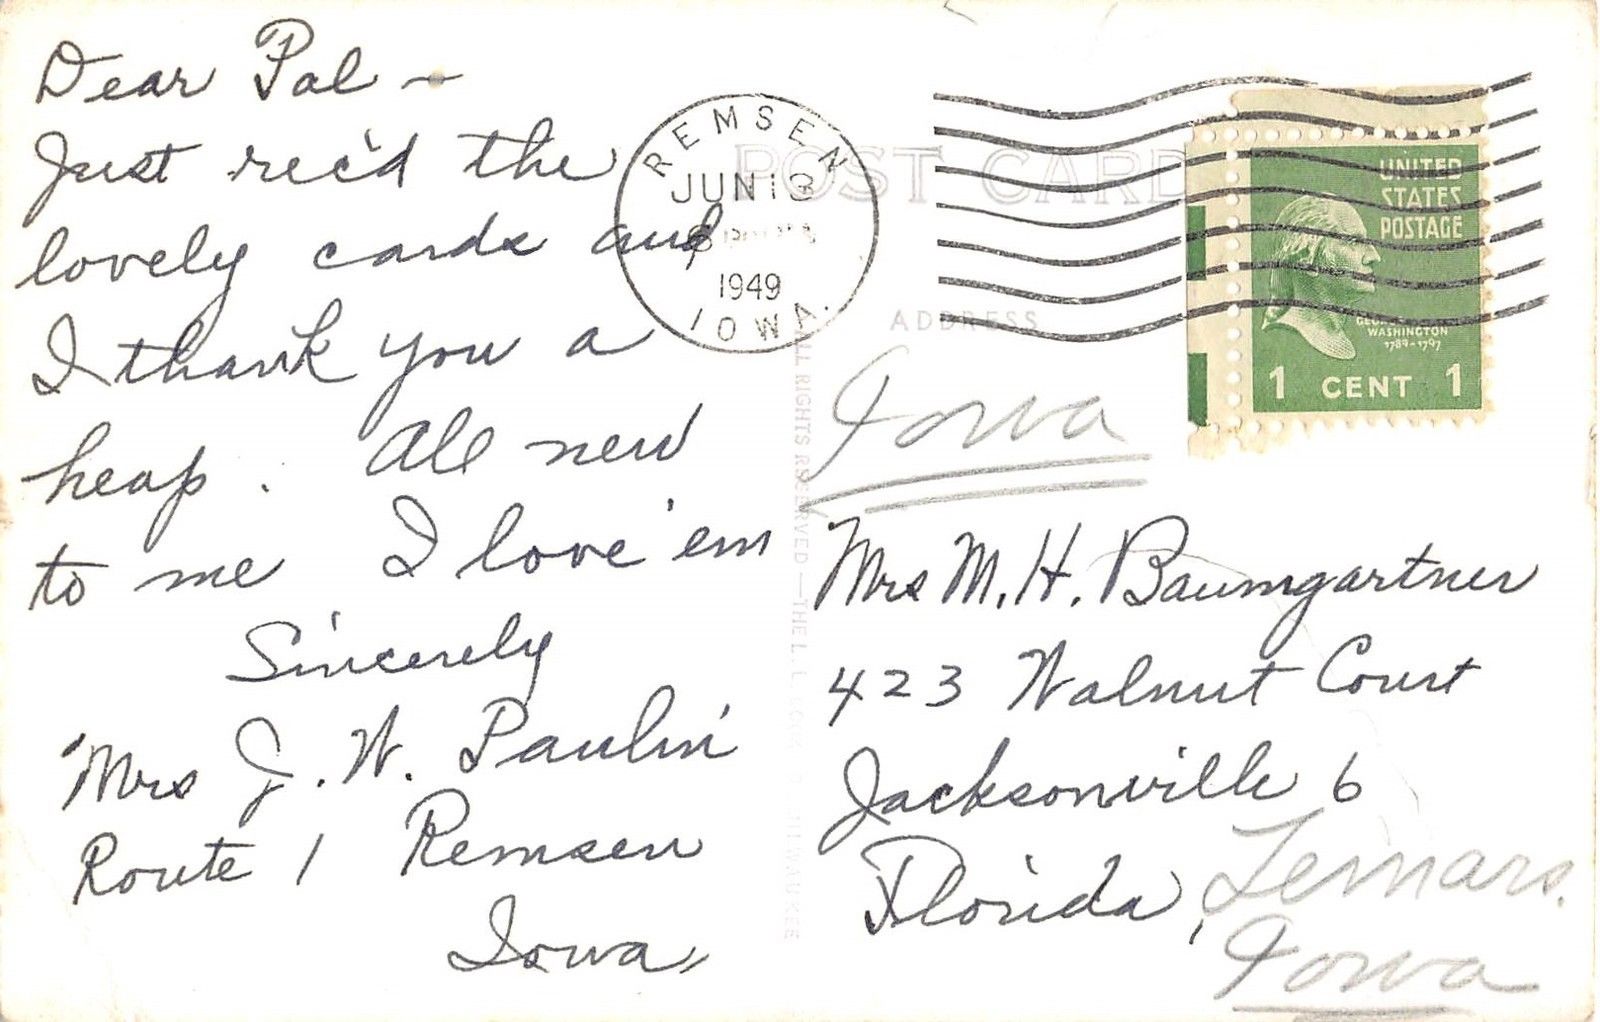 Dear Pal ~
Just rec'd the
lovely cards and
I thank you a
heap. All new
to me I love 'em
Sincerely
Mrs J. W. Paulin
Route 1 Remsen
Iowa,
REMSEN
JUN 13
1949
IOWA.
POST CARD
ADDRESS
UNITED
STATES
POSTAGE
WASHINGTON
1789-1797
1 CENT 1
Iowa
Mrs M. H. Baumgartner
423 Walnut Court
Jacksonville 6
Florida,
Lemars.
Iowa
ALL RIGHTS RESERVED—THE L. L. MILWAUKEE